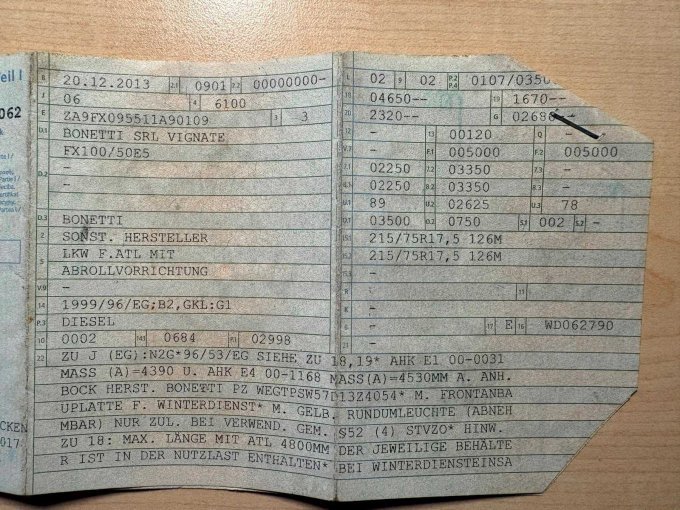 Teil I
062
CKEN
017
B 20.12.2013 2.1 0901 2.2 00000000-
J 06 4 6100
E ZA9FX095511A90109 3 3
D.1 BONETTI SRL VIGNATE
FX100/50E5
-
D.2 -
-
D.3 BONETTI
2 SONST. HERSTELLER
5 LKW F.ATL MIT
ABROLLVORRICHTUNG
V.9 -
14 1999/96/EG;B2,GKL:G1
P.3 DIESEL
10 0002 14.1 0684 P.1 02998
L 02 9 02 P.2 P.4 0107/0350
18 04650-- 19 1670--
20 2320-- G 02688--
12 - 13 00120 Q -
V.7 - F.1 005000 F.2 005000
7.1 02250 7.2 03350 7.3 -
8.1 02250 8.2 03350 8.3 -
U.1 89 U.2 02625 U.3 78
O.1 03500 O.2 0750 S.1 002 S.2 -
15.1 215/75R17,5 126M
15.2 215/75R17,5 126M
15.3 -
R - 11
K -
6 - 17 E 16 WD062790
21 -
22 ZU J (EG):N2G*96/53/EG SIEHE ZU 18,19* AHK E1 00-0031
MASS (A)=4390 U. AHK E4 00-1168 MASS(A)=4530MM A. ANH.
BOCK HERST. BONETTI PZ WEGTPSW57D13Z4054* M. FRONTANBA
UPLATTE F. WINTERDIENST* M. GELB. RUNDUMLEUCHTE (ABNEH
MBAR) NUR ZUL. BEI VERWEND. GEM. §52 (4) STVZO* HINW.
ZU 18: MAX. LÄNGE MIT ATL 4800MM DER JEWEILIGE BEHÄLTE
R IST IN DER NUTZLAST ENTHALTEN* BEI WINTERDIENSTEINSA